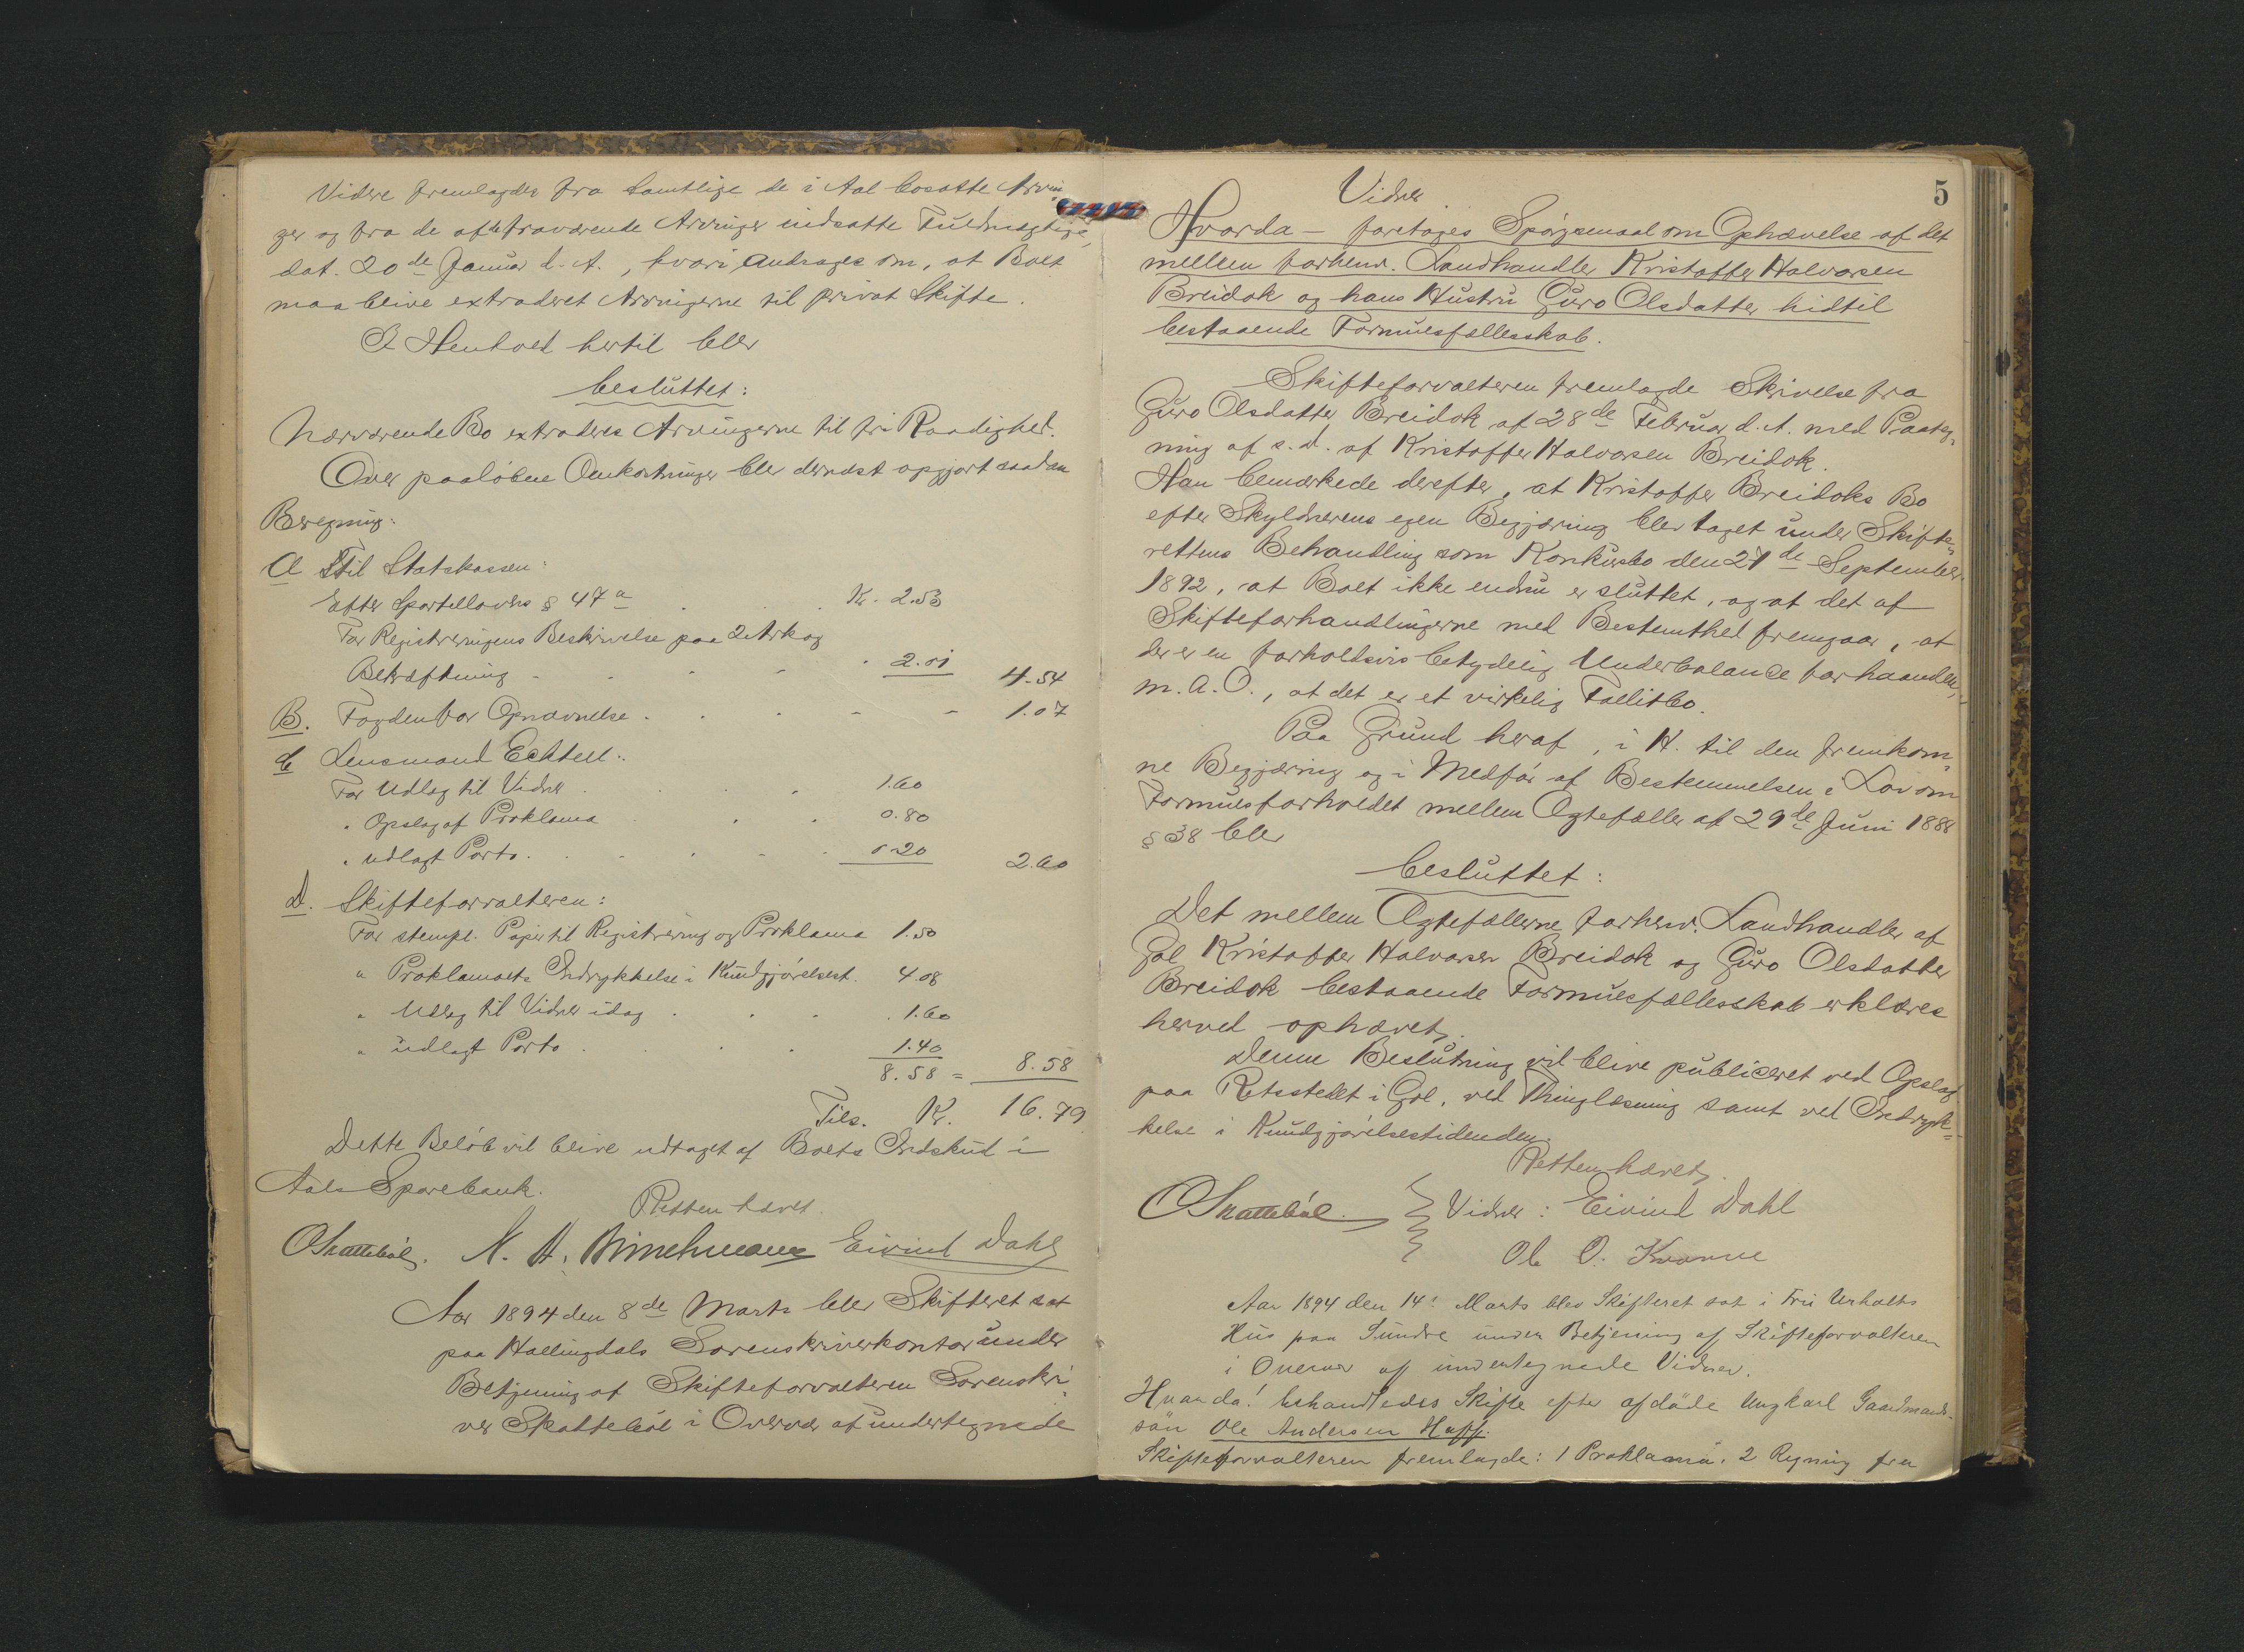 Videre fremlagdes fra samtlige de i Aal bosatte Arvin
ger og fra de af de fraværende Arvinger indsatte Fuldmægtige,
dat. 20de Januar d. A., hvori andrages om, at Boet
maa blive extraderet Arvingerne til privat Skifte.
I Henhold hertil blev
besluttet:
Nærværende Bo extraderes Arvingerne til fri Raadighed.
Over paaløbne Omkostninger blev dernæst opgjort saadan
Beregning:
A Til Statskassen:
Efter Sportellovens § 47 a . . . Kr. 2.53
For Registreringens Beskrivelse paa 2 Ark og
Bekræftning - - - - 2.01 4.54
B. Fogden for Opnævnelse . . . - - 1.07
C Lensmand Echtell:
For Udlæg til Vidner . . . 1.60
" Opslag af Proklama . . . 0.80
" udlagt Porto . . . 0.20 2.60
D. Skifteforvalteren:
For stempl. Papir til Registrering og Proklama 1.50
" Proklamaets Indrykkelse i Kundgjørelsest. 4.08
" Udlæg til Vidner idag . . . 1.60
" udlagt Porto . . . 1.40
8.58 = 8.58
Tils. Kr. 16.79
Dette Beløb vil blive udtaget af Boets Indskud i
Aals Sparebank.
Retten hævet.
OSkattebøl. N. H. Eivind Dahl
Aar 1894 den 8de Marts blev Skifteret sat
paa Hallingdals Sorenskriverkontor under
Betjening af Skifteforvalteren Sorenskri
ver Skattebøl i Overvær af undertegnede
5
Vidner
Hvorda - foretages Spørgsmaal om Ophævelse af det
mellem forhenv. Landhandler Kristoffer Halvorsen
Breidok og hans Hustru Guro Olsdatter hidtil
bestaaende Formuesfællesskab.
Skifteforvalteren fremlagde Skrivelse fra
Guro Olsdatter Breidok af 28de Februar d. A. med Paateg=
ning af s. d. af Kristoffer Halvorsen Breidok.
Han bemærkede derefter, at Kristoffer Breidoks Bo
efter Skyldnerens egen Begjæring blev taget under Skifte=
rettens Behandling som Konkursbo den 27de September
1892, at Boet ikke endnu er sluttet, og at det af
Skifteforhandlingerne med Bestemthed fremgaar, at
der er en forholdsvis betydelig Underbalance forhaanden,
m. a. O., at det er et virkelig Fallitbo.
Paa Grund heraf, i H. til den fremkom=
ne Begjæring og i Medfør af Bestemmelsen i Lov om
Formuesforholdet mellem Ægtefæller af 29de Juni 1888
§ 38 blev
besluttet:
Det mellem Ægtefællerne forhenv. Landhandler af
Gol Kristoffer Halvorsen Breidok og Guro Olsdatter
Breidok bestaaende Formuesfællesskab erklæres
herved ophævet.
Denne Beslutning vil blive publiceret ved Opslag
paa Retsstedet i Gol, ved Thinglæsning samt ved Indryk=
kelse i Kundgjørelsestidenden.
Retten hævet.
OSkattebøl. Vidner: Eivind Dahl
Ole O. Kvanne
Aar 1894 den 14: Marts blev Skifteret sat i Fru Urholts
Hus paa Sundre under Betjening af Skifteforvalteren
i Overvær af undertegnede Vidner.
Hvorda! behandledes Skifte efter afdøde Ungkarl Gaardmands-
søn Ole Andersen Huff.
Skifteforvalteren fremlagde: 1 Proklama. 2 Regning fra